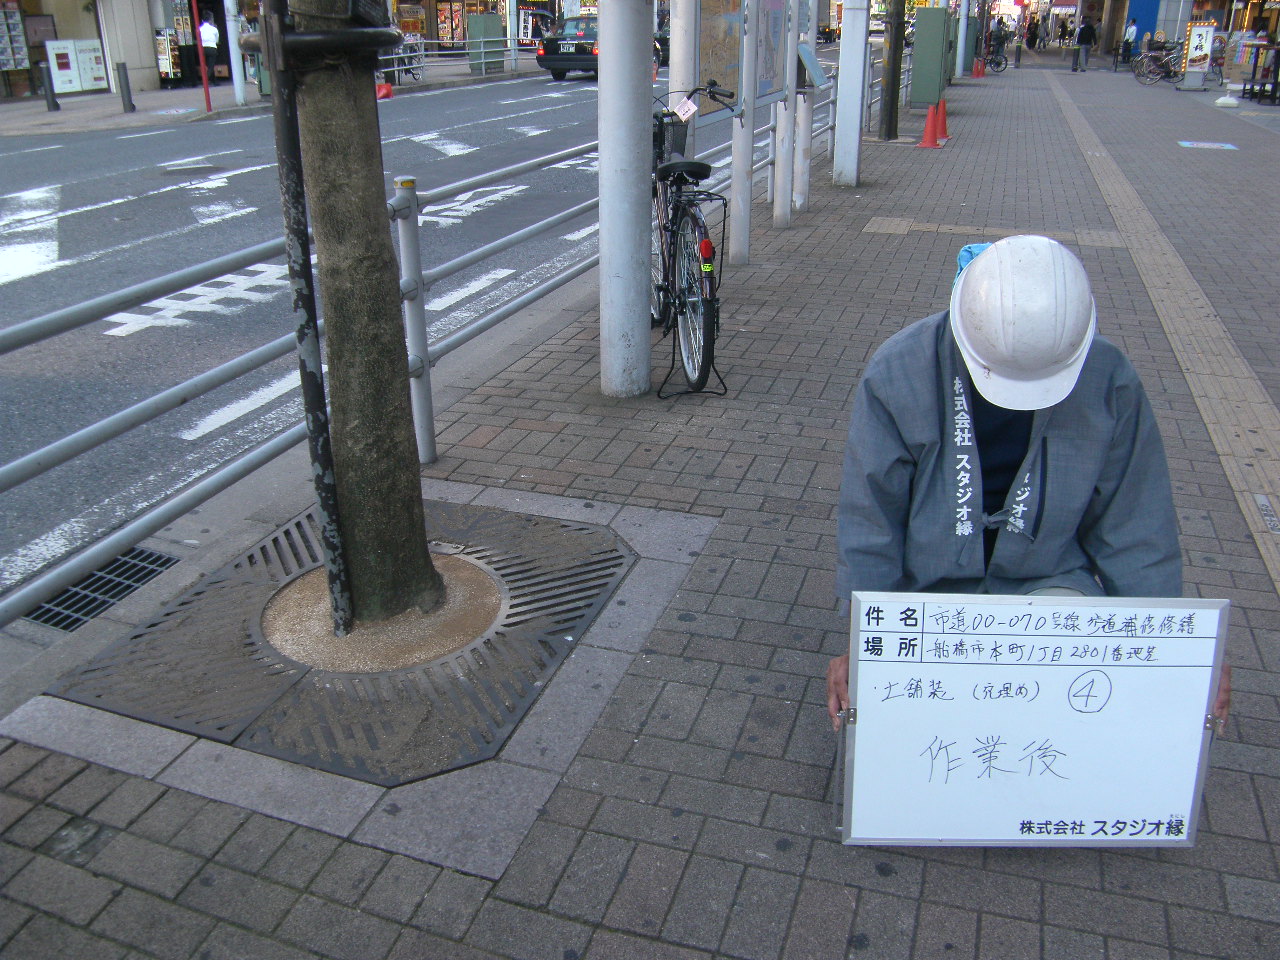 株式会社 スタジオ縁
スタジオ縁
件名 市道00-070号線 歩道補修修繕
場所 船橋市本町1丁目2801番地先
・土舗装 (穴埋め) ④
作業後
株式会社 スタジオ縁